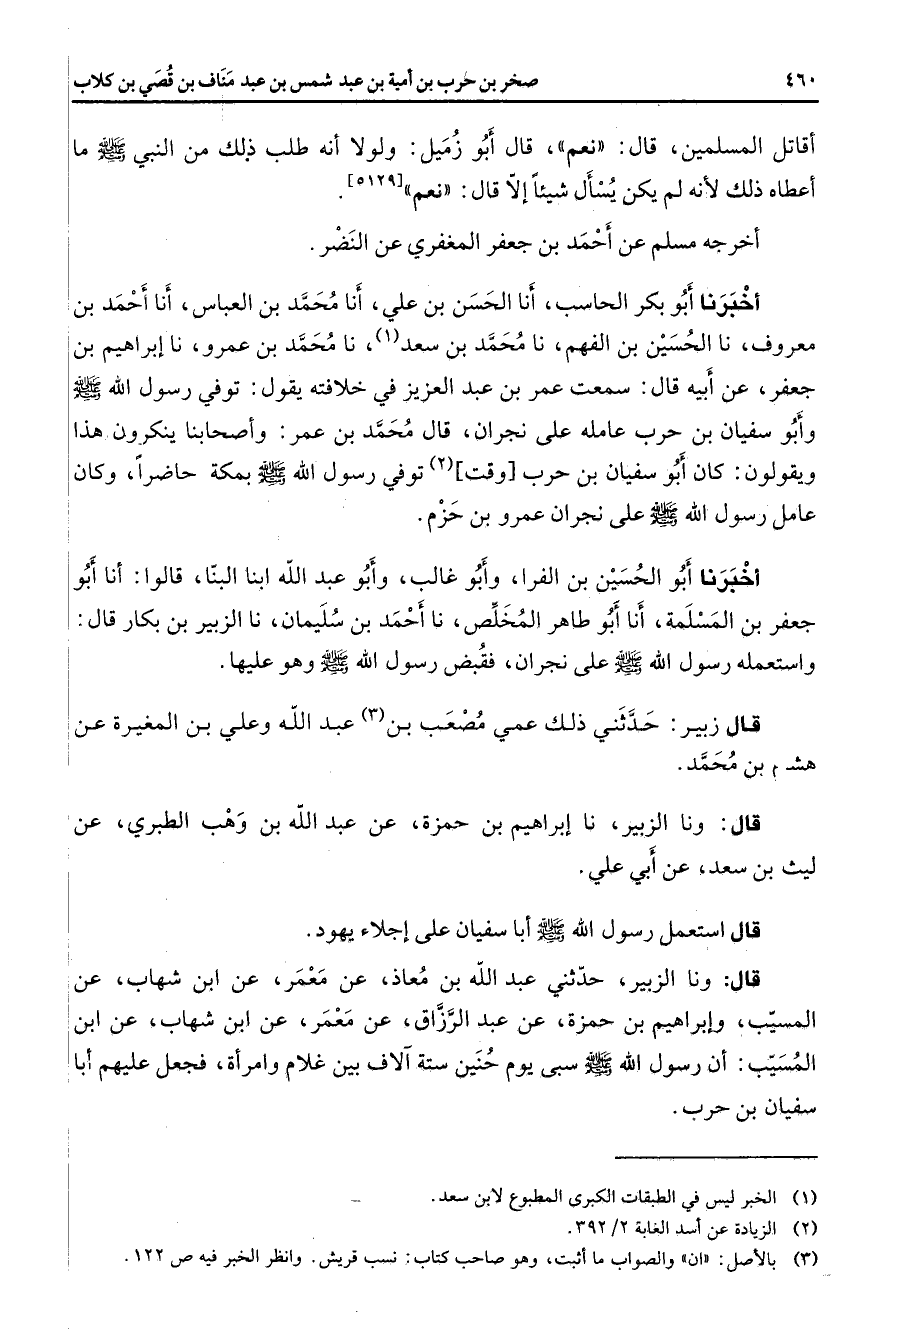 ٤٦٠ صخر بن حرب بن أمية بن عبد شمس بن عبد مَنَاف بن قُصَي بن كلاب
أقاتل المسلمين، قال: «نعم»، قال أَبُو زُمَيل: ولولا أنه طلب ذلك من النبي ﷺ ما
أعطاه ذلك لأنه لم يكن يُسْأَل شيئاً إلاّ قال: «نعم»[٥١٢٩].
أخرجه مسلم عن أَحْمَد بن جعفر المغفري عن النَضْر.
أخْبَرَنا أَبُو بكر الحاسب، أَنا الحَسَن بن علي، أَنا مُحَمَّد بن العباس، أَنا أَحْمَد بن
معروف، نا الحُسَيْن بن الفهم، نا مُحَمَّد بن سعد(١)، نا مُحَمَّد بن عمرو، نا إبراهيم بن
جعفر، عن أَبيه قال: سمعت عمر بن عبد العزيز في خلافته يقول: توفي رسول الله ﷺ
وأَبُو سفيان بن حرب عامله على نجران، قال مُحَمَّد بن عمر: وأصحابنا ينكرون هذا
ويقولون: كان أَبُو سفيان بن حرب [وقت](٢) توفي رسول الله ﷺ بمكة حاضراً، وكان
عامل رسول الله ﷺ على نجران عمرو بن حَزْم.
أخْبَرَنا أَبُو الحُسَيْن بن الفرا، وأَبُو غالب، وأَبُو عبد اللّه ابنا البنّا، قالوا: أنا أَبُو
جعفر بن المَسْلَمة، أَنا أَبُو طاهر المُخَلِّص، نا أَحْمَد بن سُلَيمان، نا الزبير بن بكار قال:
واستعمله رسول الله ﷺ على نجران، فقُبض رسول الله ﷺ وهو عليها.
قال زبير: حَدَّثَني ذلك عمي مُصْعَب بن(٣) عبد اللّه وعلي بن المغيرة عن
هشام بن مُحَمَّد.
قال: ونا الزبير، نا إبراهيم بن حمزة، عن عبد اللّه بن وَهْب الطبري، عن
ليث بن سعد، عن أَبي علي.
قال استعمل رسول الله ﷺ أبا سفيان على إجلاء يهود.
قال: ونا الزبير، حدّثني عبد اللّه بن مُعاذ، عن مَعْمَر، عن ابن شهاب، عن
المسيّب، وإبراهيم بن حمزة، عن عبد الرَّزَّاق، عن مَعْمَر، عن ابن شهاب، عن ابن
المُسَيّب: أن رسول الله ﷺ سبى يوم حُنَين ستة آلاف بين غلام وامرأة، فجعل عليهم أبا
سفيان بن حرب.
(١) الخبر ليس في الطبقات الكبرى المطبوع لابن سعد.
(٢) الزيادة عن أسد الغابة ٢/ ٣٩٢.
(٣) بالأصل: «ان» والصواب ما أثبت، وهو صاحب كتاب: نسب قريش. وانظر الخبر فيه ص ١٢٢.